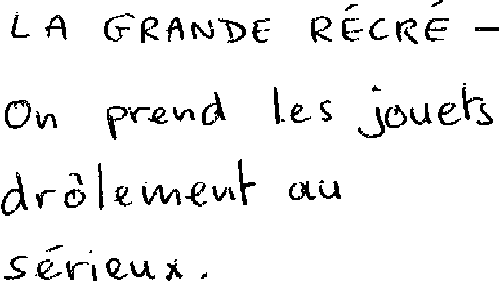 LA GRANDE RÉCRÉ -
On prend les jouets
drôlement au
sérieux.